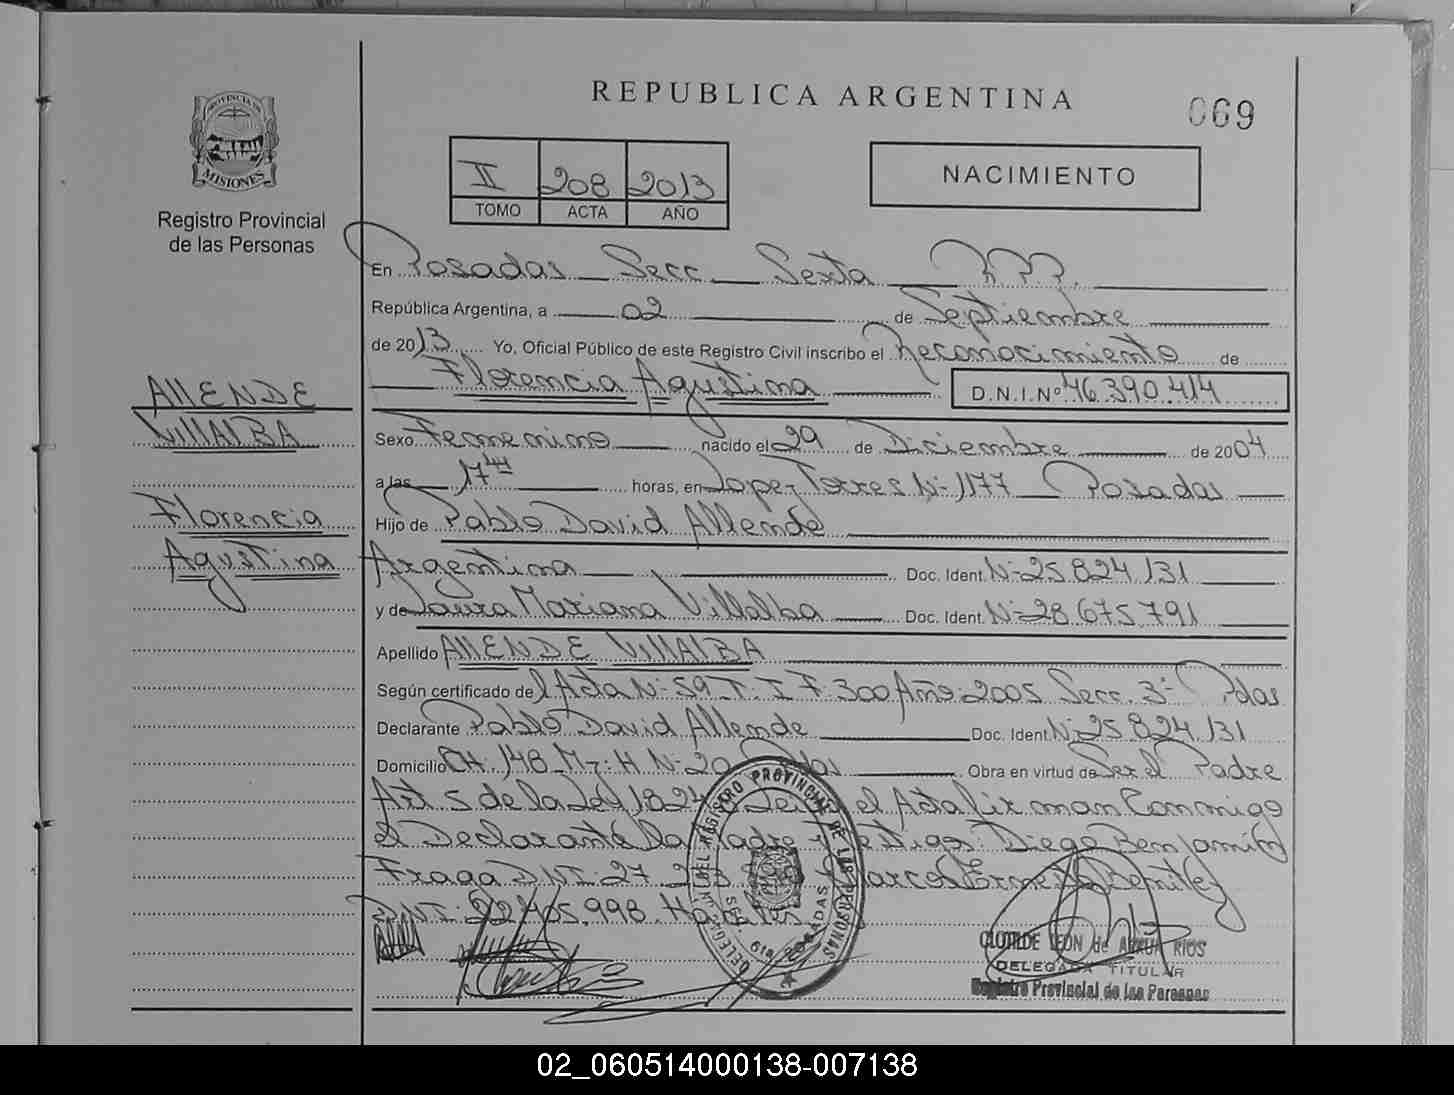 REPUBLICA ARGENTINA
069
PROVINCIA DE
MISIONES
Registro Provincial
de las Personas
II 208 2013
TOMO ACTA AÑO
NACIMIENTO
En Posadas Secc. Sexta
República Argentina, a 02 de Septiembre
de 2013 Yo, Oficial Público de este Registro Civil inscribo el Reconocimiento de
Florencia Agustina D.N.I.Nº 46.390.414
ALLENDE
VILLALBA
Florencia
Agustina
Sexo Femenino nacido el 29 de Diciembre de 2004
a las 17 horas, en Lopez Torres Nº 1177 Posadas
Hijo de Pablo David Allende
Argentina Doc. Ident. Nº 25.824.131
y de Laura Mariana Villalba Doc. Ident. Nº 28.675.791
Apellido ALLENDE VILLALBA
Según certificado del Acta Nº 59 T: I F: 300 Año: 2005 Secc. 3ª Pdas
Declarante Pablo David Allende Doc. Ident. Nº 25.824.131
Domicilio CH. 148 Mz: H Nº 20 Pdas Obra en virtud de Ser el Padre
Art 5 de la Ley el Acta firman Conmigo
el Declarante la Madre y Testigos: Diego Benjamín
Fraga DNI: 27 Marcos Ernesto Benitez
DNI: 22.405.998
DEL REGISTRO PROVINCIAL DE LAS PERSONAS
POSADAS
CLOTILDE LEON de ARRUA RIOS
DELEGADA TITULAR
Registro Provincial de las Personas
02_060514000138-007138